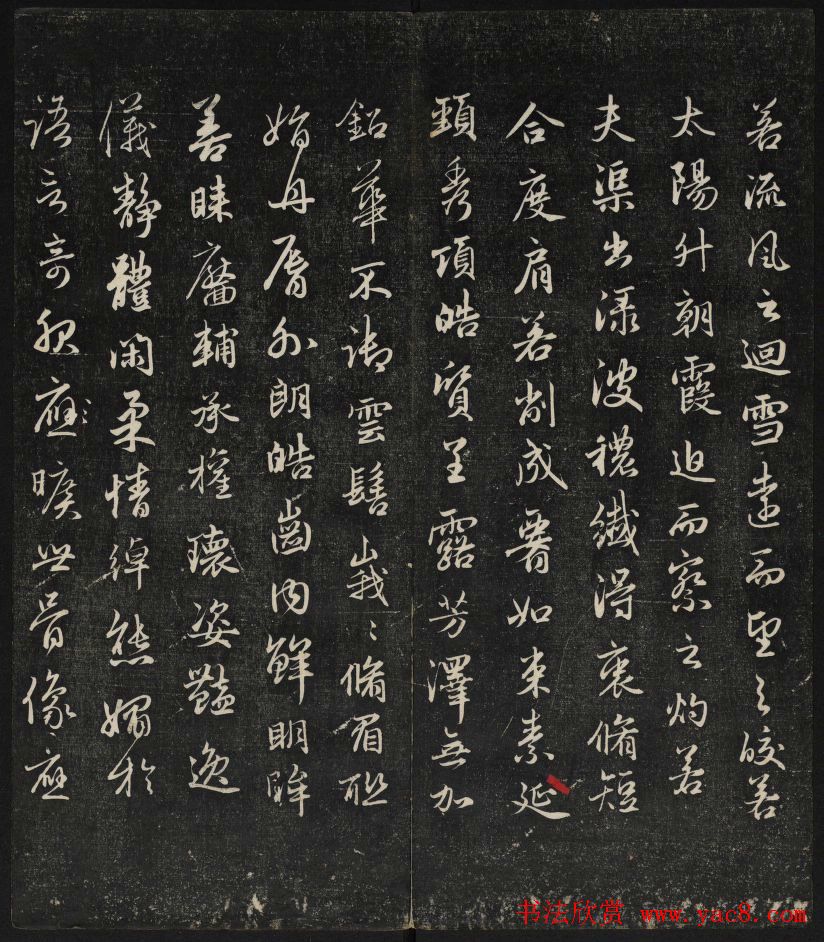 若流風之迴雪遠而望之皎若
太陽升朝霞迫而察之灼若
夫渠出渌波穠纖得衷脩短
合度肩若削成腰如束素延
頸秀項皓質呈露芳澤無加
鉛華不御雲髻峩〻脩眉聯
娟丹脣外朗皓齒內鮮明眸
善睞靨輔承權瓌姿豔逸
儀靜體閑柔情綽態媚於
語言奇服應曠世骨像應
书法欣赏 www.yac8.com